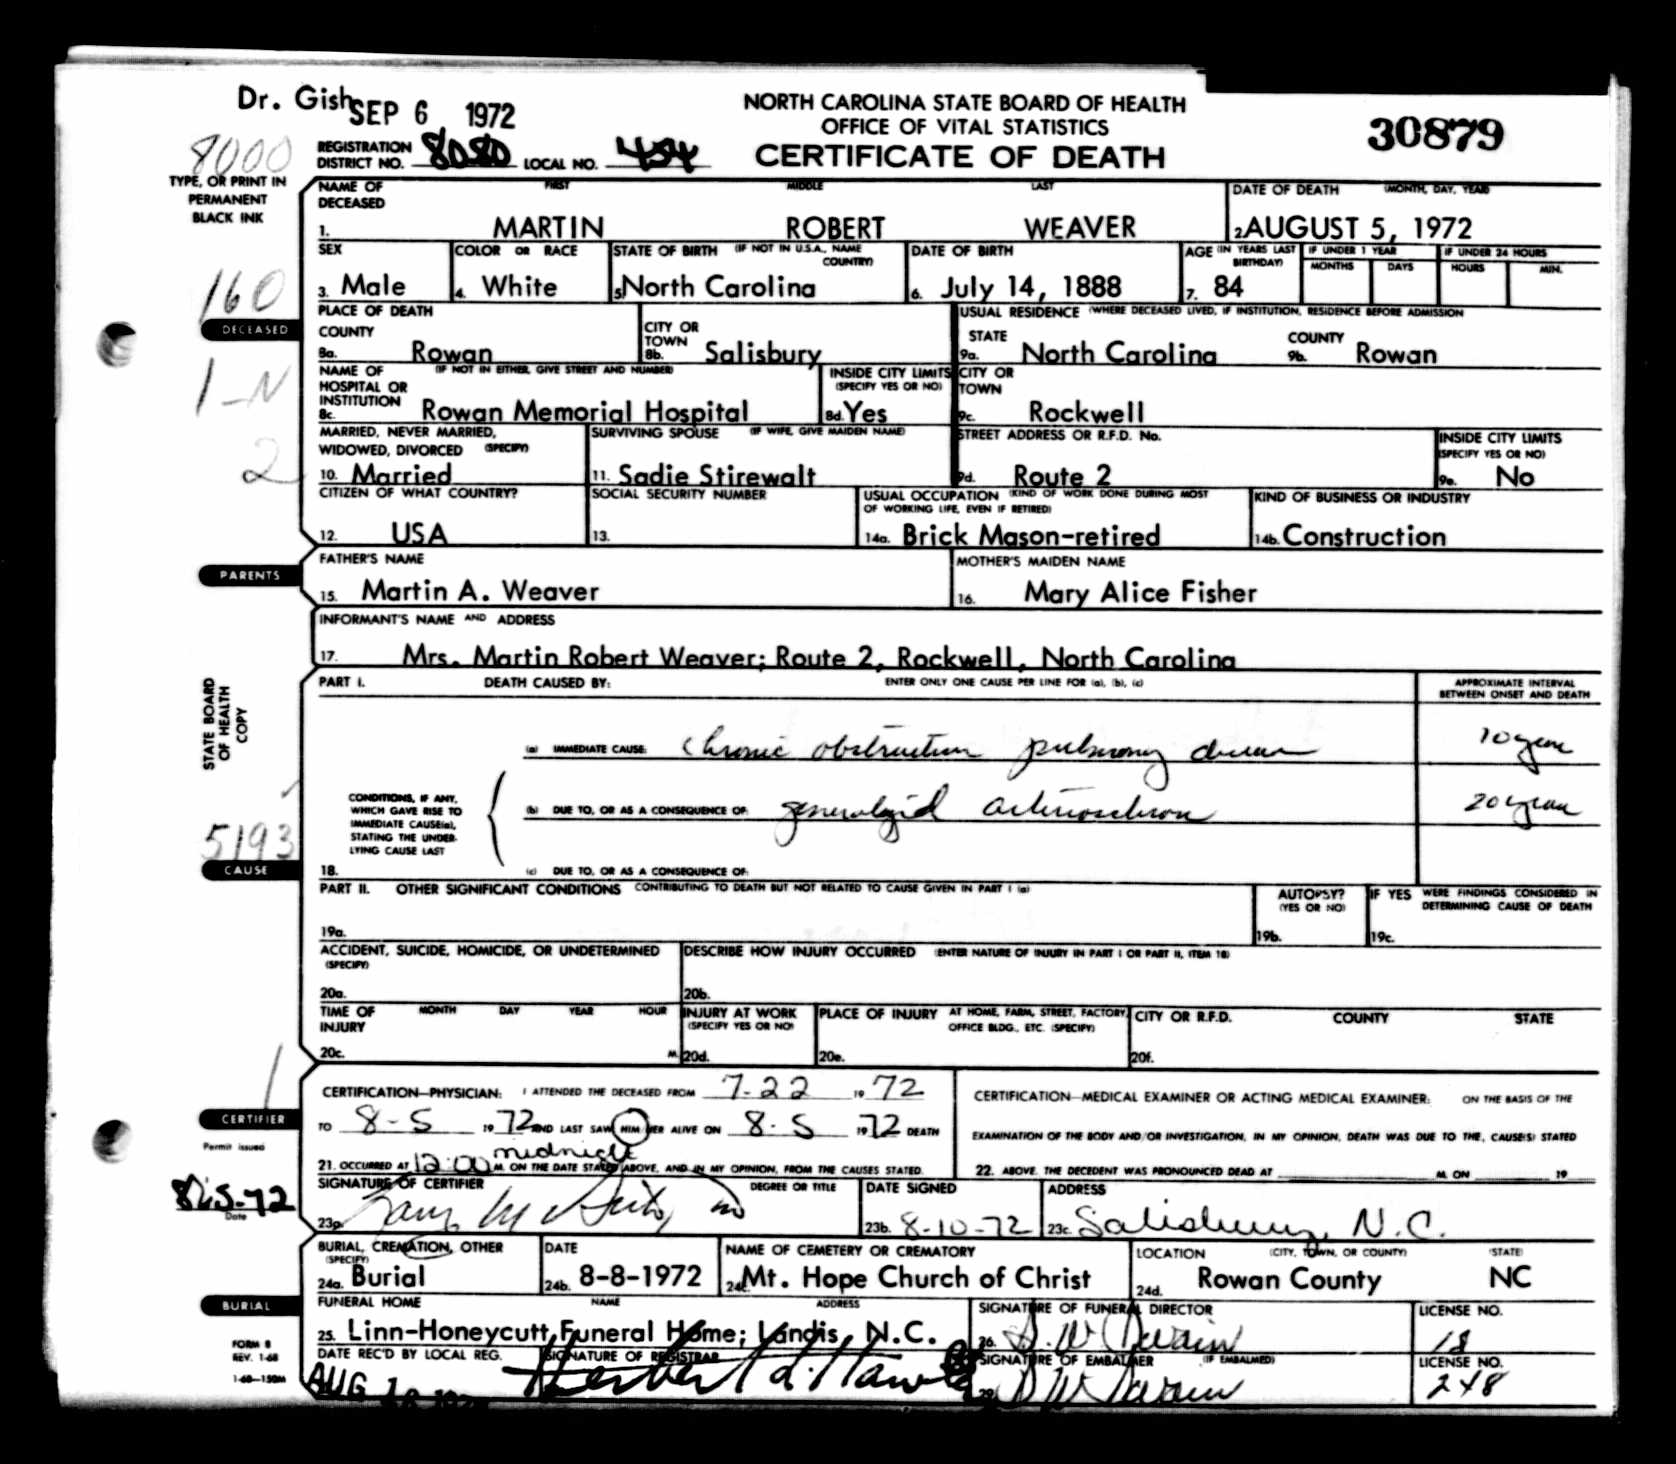 Dr. Gish
SEP 6 1972
NORTH CAROLINA STATE BOARD OF HEALTH
OFFICE OF VITAL STATISTICS
CERTIFICATE OF DEATH
30879
8000
REGISTRATION DISTRICT NO. 8080 LOCAL NO. 454
TYPE, OR PRINT IN
PERMANENT
BLACK INK
NAME OF DECEASED FIRST MIDDLE LAST
1. MARTIN ROBERT WEAVER
DATE OF DEATH (MONTH, DAY, YEAR)
2. AUGUST 5, 1972
SEX
3. Male
COLOR OR RACE
4. White
STATE OF BIRTH (IF NOT IN U.S.A., NAME COUNTRY)
5. North Carolina
DATE OF BIRTH
6. July 14, 1888
AGE (IN YEARS LAST BIRTHDAY)
7. 84
IF UNDER 1 YEAR
MONTHS DAYS
IF UNDER 24 HOURS
HOURS MIN.
160
DECEASED
1-N
2
PLACE OF DEATH
COUNTY
8a. Rowan
CITY OR TOWN
8b. Salisbury
USUAL RESIDENCE (WHERE DECEASED LIVED, IF INSTITUTION, RESIDENCE BEFORE ADMISSION
STATE
9a. North Carolina
COUNTY
9b. Rowan
NAME OF HOSPITAL OR INSTITUTION (IF NOT IN EITHER, GIVE STREET AND NUMBER)
8c. Rowan Memorial Hospital
INSIDE CITY LIMITS (SPECIFY YES OR NO)
8d. Yes
CITY OR TOWN
9c. Rockwell
MARRIED, NEVER MARRIED, WIDOWED, DIVORCED (SPECIFY)
10. Married
SURVIVING SPOUSE (IF WIFE, GIVE MAIDEN NAME)
11. Sadie Stirewalt
STREET ADDRESS OR R.F.D. No.
9d. Route 2
INSIDE CITY LIMITS (SPECIFY YES OR NO)
9e. No
CITIZEN OF WHAT COUNTRY?
12. USA
SOCIAL SECURITY NUMBER
13.
USUAL OCCUPATION (KIND OF WORK DONE DURING MOST OF WORKING LIFE, EVEN IF RETIRED)
14a. Brick Mason-retired
KIND OF BUSINESS OR INDUSTRY
14b. Construction
PARENTS
FATHER'S NAME
15. Martin A. Weaver
MOTHER'S MAIDEN NAME
16. Mary Alice Fisher
INFORMANT'S NAME AND ADDRESS
17. Mrs. Martin Robert Weaver; Route 2, Rockwell, North Carolina
STATE BOARD
OF HEALTH
COPY
PART I. DEATH CAUSED BY: ENTER ONLY ONE CAUSE PER LINE FOR (a), (b), (c)
APPROXIMATE INTERVAL BETWEEN ONSET AND DEATH
(a) IMMEDIATE CAUSE: chronic obstructive pulmonary disease 10 years
CONDITIONS, IF ANY,
WHICH GAVE RISE TO
IMMEDIATE CAUSE(a),
STATING THE UNDER-
LYING CAUSE LAST
(b) DUE TO, OR AS A CONSEQUENCE OF: generalized 20 years
5193
CAUSE
18. (c) DUE TO, OR AS A CONSEQUENCE OF:
PART II. OTHER SIGNIFICANT CONDITIONS CONTRIBUTING TO DEATH BUT NOT RELATED TO CAUSE GIVEN IN PART I (a)
19a.
AUTOPSY? (YES OR NO)
19b.
IF YES WERE FINDINGS CONSIDERED IN DETERMINING CAUSE OF DEATH
19c.
ACCIDENT, SUICIDE, HOMICIDE, OR UNDETERMINED (SPECIFY)
20a.
DESCRIBE HOW INJURY OCCURRED (ENTER NATURE OF INJURY IN PART I OR PART II, ITEM 18)
20b.
TIME OF INJURY MONTH DAY YEAR HOUR
20c. M.
INJURY AT WORK (SPECIFY YES OR NO)
20d.
PLACE OF INJURY AT HOME, FARM, STREET, FACTORY, OFFICE BLDG., ETC. (SPECIFY)
20e.
CITY OR R.F.D. COUNTY STATE
20f.
1
CERTIFIER
CERTIFICATION—PHYSICIAN: I ATTENDED THE DECEASED FROM 7-22 19 72
TO 8-5 19 72 AND LAST SAW HIM HER ALIVE ON 8-5 19 72 DEATH
midnight
21. OCCURRED AT 12:00 M. ON THE DATE STATED ABOVE, AND IN MY OPINION, FROM THE CAUSES STATED.
CERTIFICATION—MEDICAL EXAMINER OR ACTING MEDICAL EXAMINER: ON THE BASIS OF THE
EXAMINATION OF THE BODY AND/OR INVESTIGATION, IN MY OPINION, DEATH WAS DUE TO THE, CAUSE(S) STATED
22. ABOVE. THE DECEDENT WAS PRONOUNCED DEAD AT M. ON 19
Permit issued
Date
SIGNATURE OF CERTIFIER DEGREE OR TITLE
23a.
DATE SIGNED
23b. 8-10-72
ADDRESS
23c. Salisbury, N.C.
BURIAL, CREMATION, OTHER (SPECIFY)
24a. Burial
DATE
24b. 8-8-1972
NAME OF CEMETERY OR CREMATORY
24c. Mt. Hope Church of Christ
LOCATION (CITY, TOWN, OR COUNTY) (STATE)
24d. Rowan County NC
BURIAL
FUNERAL HOME NAME ADDRESS
25. Linn-Honeycutt Funeral Home; Landis, N.C.
SIGNATURE OF FUNERAL DIRECTOR
26.
LICENSE NO.
FORM 8
REV. 1-68
1-68—150M
DATE REC'D BY LOCAL REG.
AUG
SIGNATURE OF REGISTRAR
SIGNATURE OF EMBALMER (IF EMBALMED)
LICENSE NO.
248